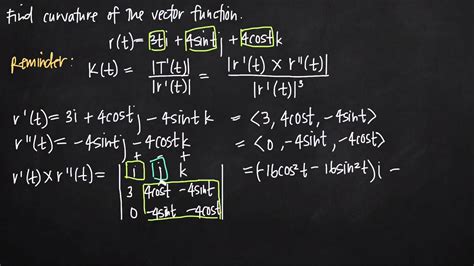 Find curvature of the vector function.
r(t)=3ti+4sintj+4costk
Reminder: K(t)=|T'(t)|/|r'(t)|=|r'(t)×r''(t)|/|r'(t)|³
r'(t)=3i+4costj-4sintk =<3,4cost,-4sint>
r''(t)=-4sintj-4costk =<0,-4sint,-4cost>
+ - +
r'(t)×r''(t)=|i j k| =(-16cos²t-16sin²t)i-
3 4cost -4sint
0 -4sint -4cost